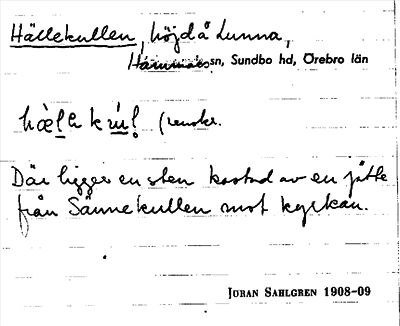 Hällekullen, höjd å Lunna,
Hammars sn, Sundbo hd, Örebro län
Där ligger en sten kastad av en jätte
från Sännekullen mot kyrkan.
JOHAN SAHLGREN 1908-09